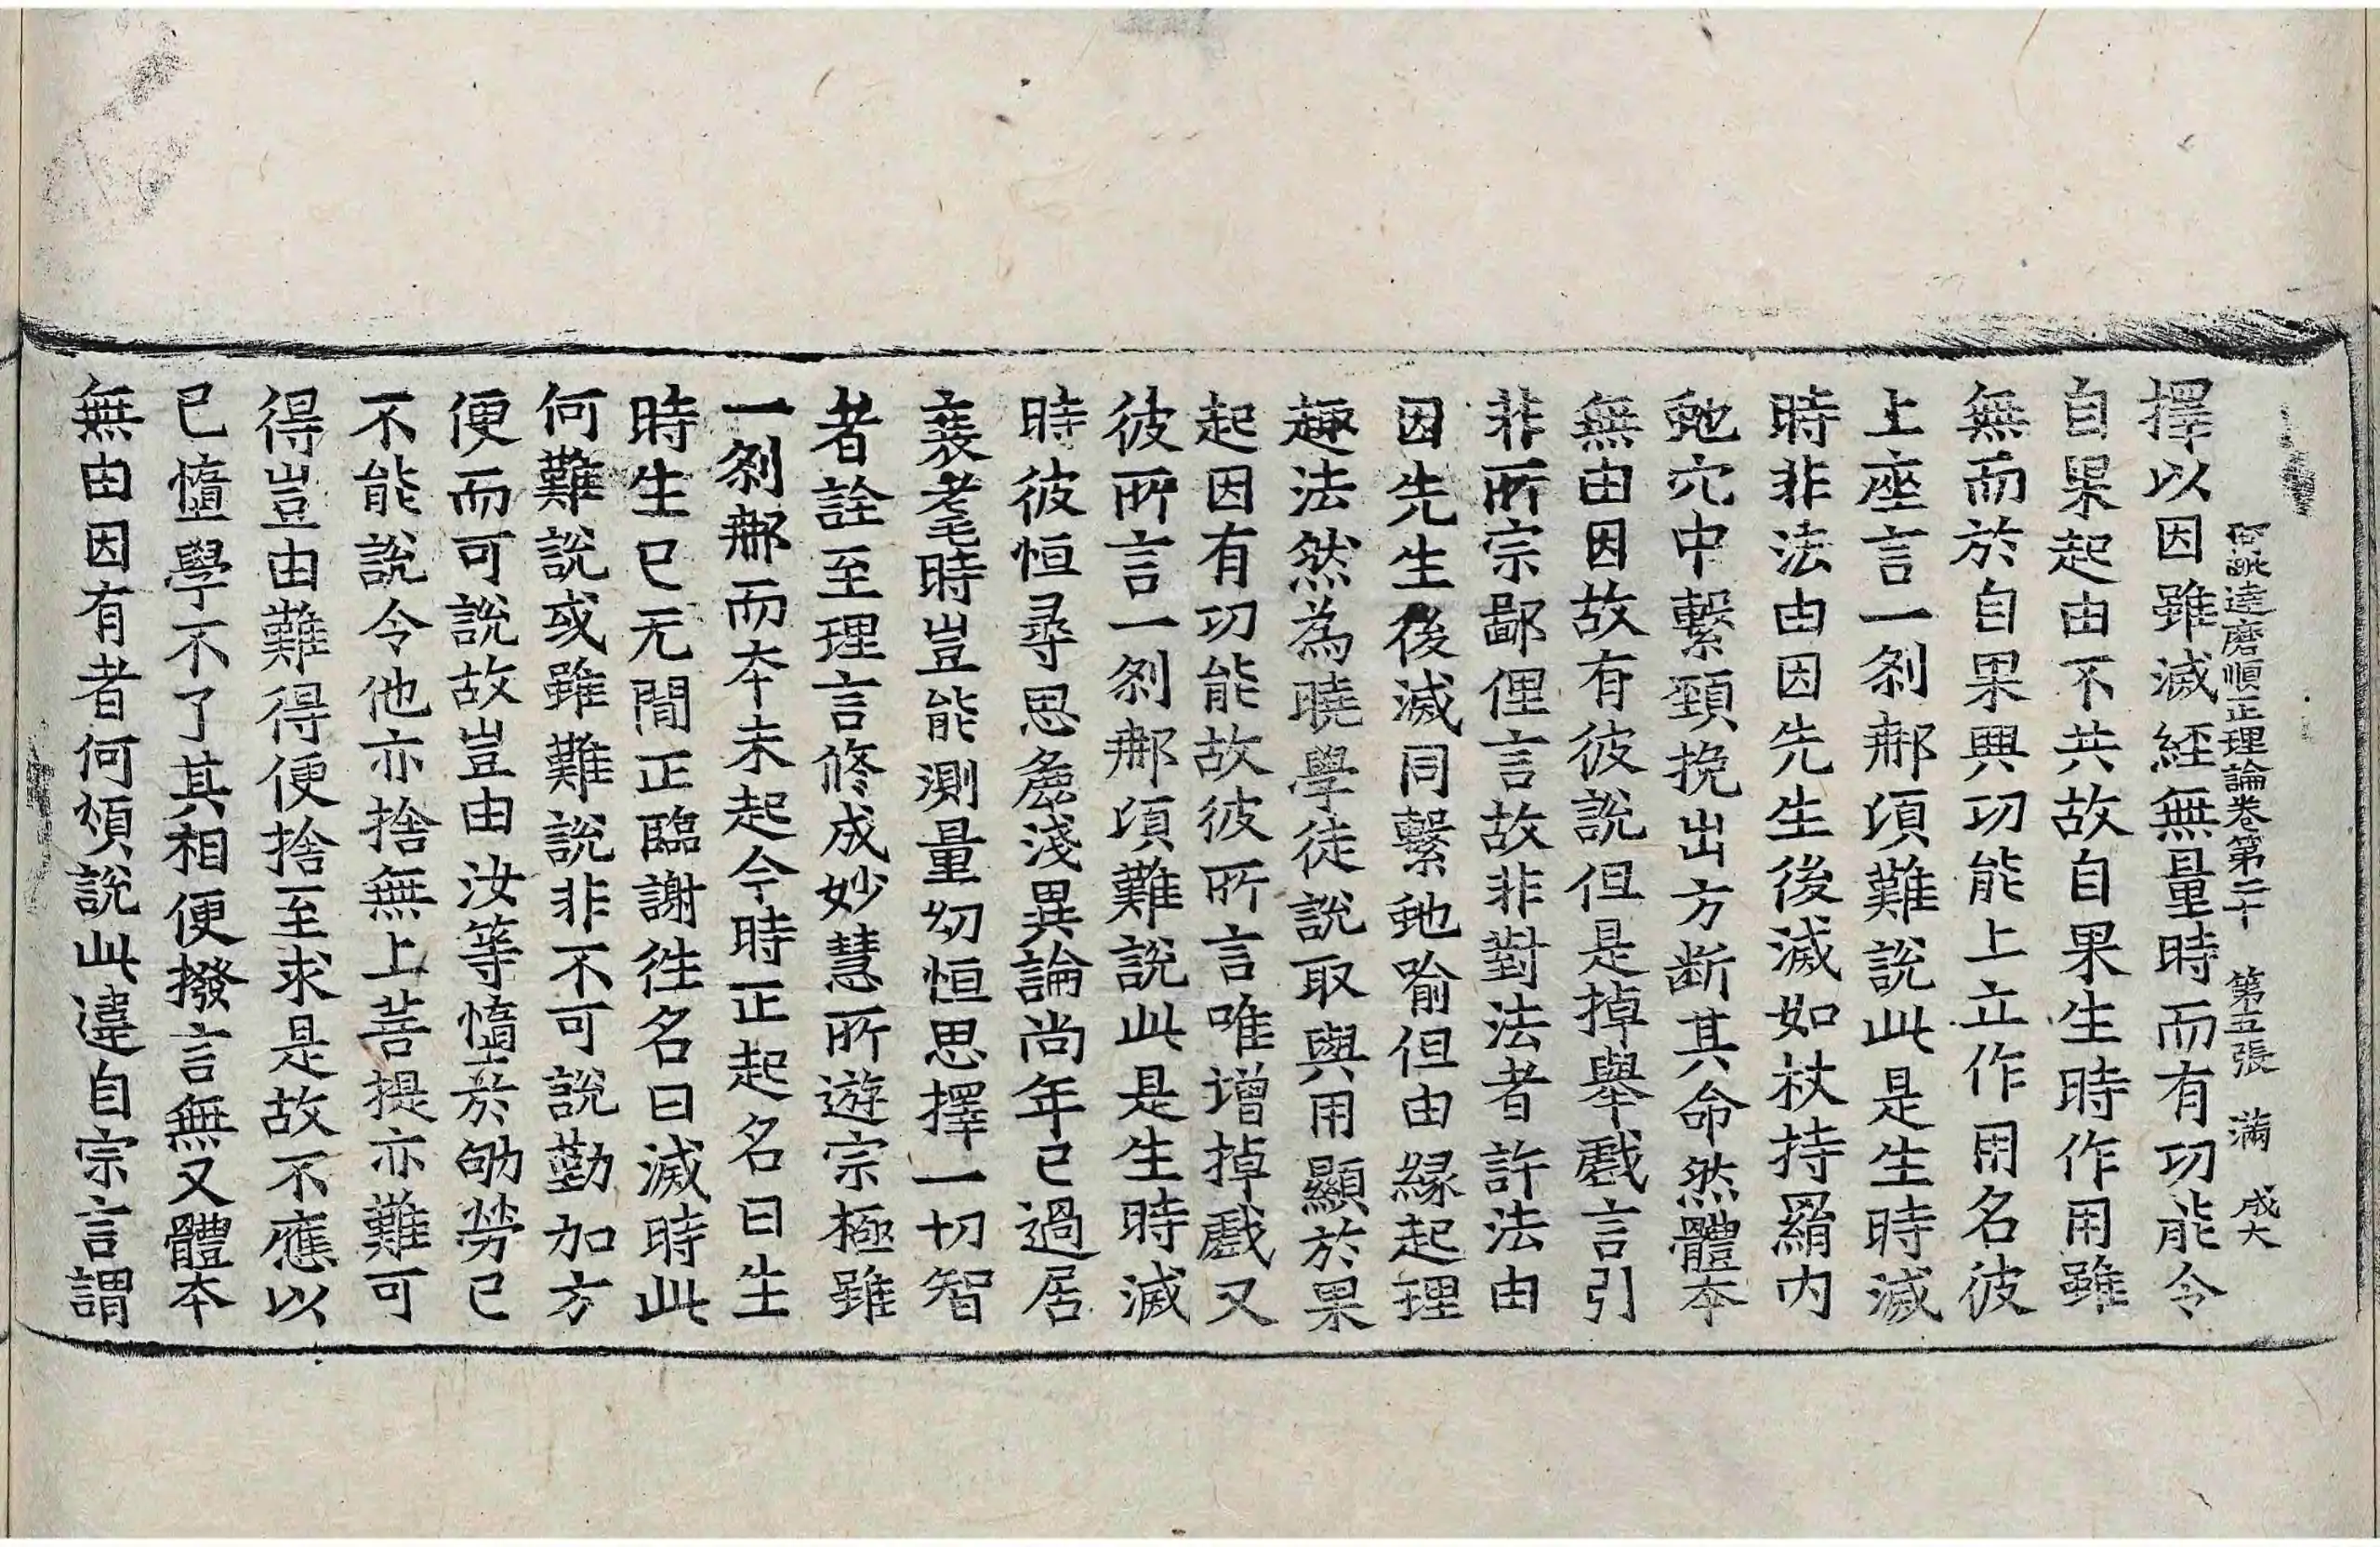 阿毗達磨順正理論卷第二十 第五張 滿 成大
擇以因雖滅經無量時而有功能令
自果起由不共故自果生時作用雖
無而於自果興功能上立作用名彼
上座言一剎那頃難說此是生時滅
時非法由因先生後滅如杖持羂內
虵穴中繫頸挽出方断其命然體本
無由因故有彼說但是掉舉戲言引
非所宗鄙俚言故非對法者許法由
因先生後滅同繫虵喻但由緣起理
趣法然為曉學徒說取與用顯於果
起因有功能故彼所言唯增掉戲又
彼所言一剎那頃難說此是生時滅
時彼恒尋思麁淺異論尚年已過居
衰耄時豈能測量㓜恒思擇一切智
者詮至理言修成妙慧所遊宗極雖
一剎那而本未起今時正起名曰生
時生已无間正臨謝徃名曰滅時此
何難說或雖難說非不可說勤加方
便而可說故豈由汝等憜於劬勞已
不能說令他亦捨無上菩提亦難可
得豈由難得便捨至求是故不應以
已憜學不了其相便撥言無又體本
無由因有者何煩說此違自宗言謂